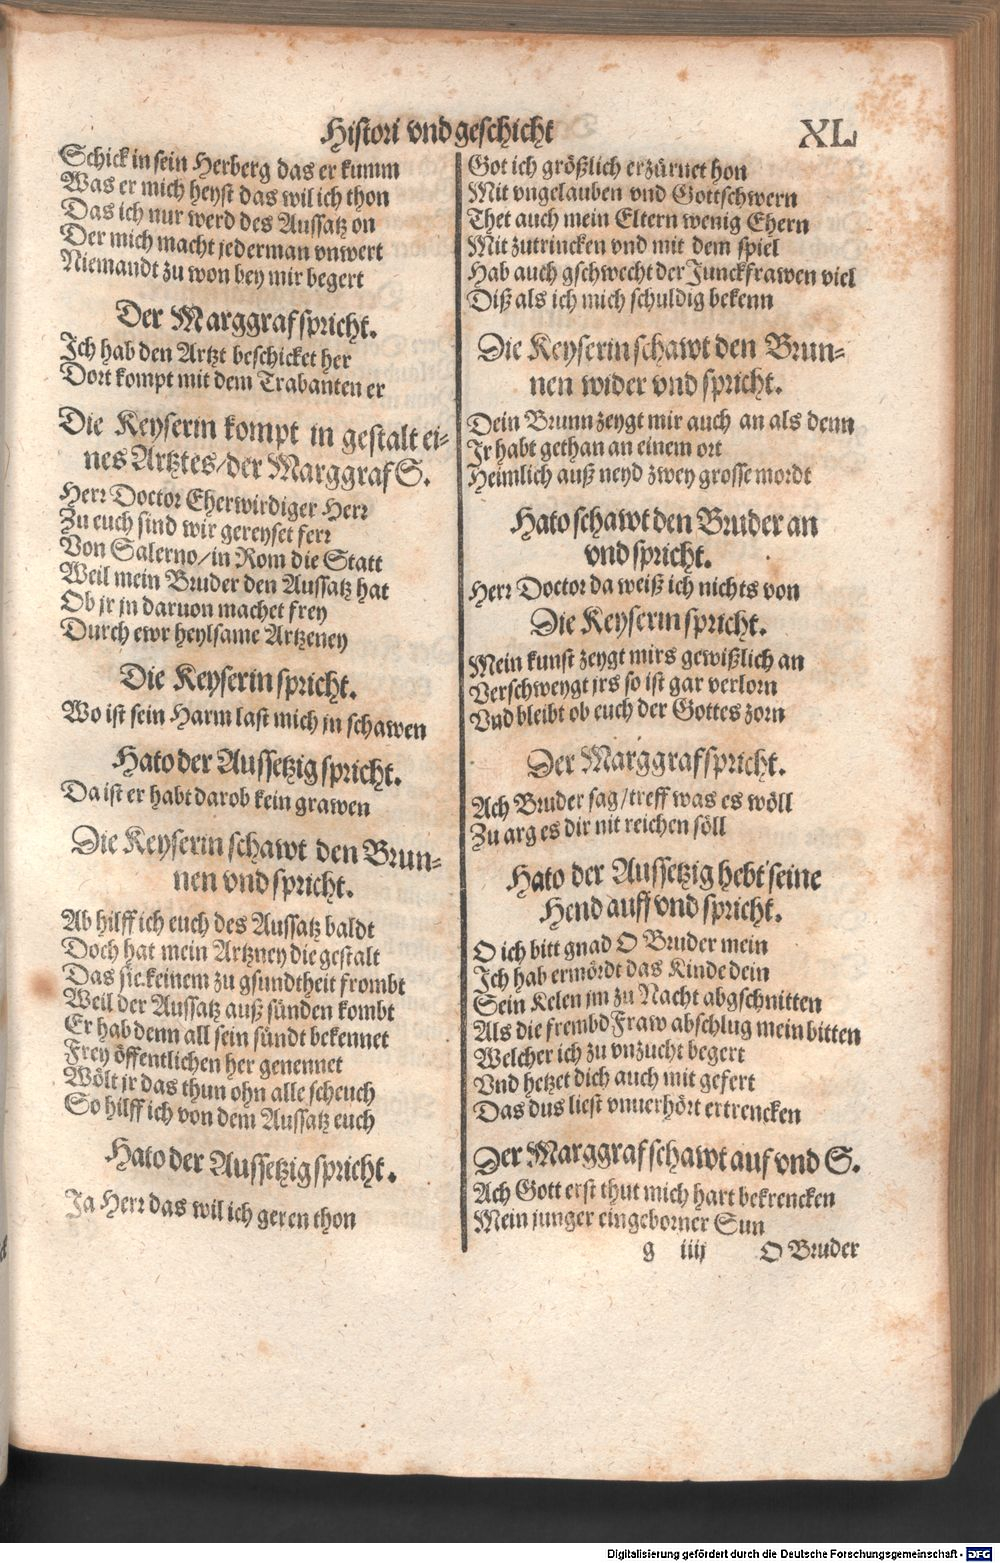 Histori vnd geschicht
XL
Schick in sein Herberg das er kumm
Was er mich heyst das wil ich thon
Das ich nur werd des Aussatz on
Der mich macht jederman vnwert
Niemandt zu won bey mir begert
Der Marggraf spricht.
Ich hab den Artzt beschicket her
Dort kompt mit dem Trabanten er
Die Keyserin kompt in gestalt ei-
nes Artztes/der Marggraf S.
Herr Doctor Eherwirdiger Herr
Zu euch sind wir gereyset ferr
Von Salerno/in Rom die Statt
Weil mein Bruder den Aussatz hat
Ob jr jn daruon machet frey
Durch ewr heylsame Artzeney
Die Keyserin spricht.
Wo ist sein Harm last mich jn schawen
Hato der Aussetzig spricht.
Da ist er habt darob kein grawen
Die Keyserin schawt den Brun-
nen vnd spricht.
Ab hilff ich euch des Aussatz baldt
Doch hat mein Artzney die gestalt
Das sie keinem zu gsundtheit frombt
Weil der Aussatz auß sünden kombt
Er hab denn all sein sündt bekennet
Frey öffentlichen her genennet
Wölt jr das thun ohn alle scheuch
So hilff ich von dem Aussatz euch
Hato der Aussetzig spricht.
Ja Herr das wil ich geren thon
Got ich größlich erzürnet hon
Mit vngelauben vnd Gottschwern
Thet auch mein Eltern wenig Ehern
Mit zutrincken vnd mit dem spiel
Hab auch gschwecht der Junckfrawen viel
Diß als ich mich schuldig bekenn
Die Keyserin schawt den Brun-
nen wider vnd spricht.
Dein Brunn zeygt mir auch an als denn
Ir habt gethan an einem ort
Heimlich auß neyd zwey grosse mordt
Hato schawt den Bruder an
vnd spricht.
Herr Doctor da weiß ich nichts von
Die Keyserin spricht.
Mein kunst zeygt mirs gewißlich an
Verschweygt jrs so ist gar verlorn
Vnd bleibt ob euch der Gottes zorn
Der Marggraf spricht.
Ach Bruder sag/treff was es wöll
Zu arg es dir nit reichen söll
Hato der Aussetzig hebt seine
Hend auff vnd spricht.
O ich bitt gnad O Bruder mein
Ich hab ermördt das Kinde dein
Sein Kelen jm zu Nacht abgschnitten
Als die frembd Fraw abschlug mein bitten
Welcher ich zu vnzucht begert
Vnd hetzet dich auch mit gefert
Das dus liest vnuerhört ertrencken
Der Marggraf schawt auf vnd S.
Ach Gott erst thut mich hart bekrencken
Mein junger eingeborner Sun
g iiij O Bruder
Digitalisierung gefördert durch die Deutsche Forschungsgemeinschaft - DFG